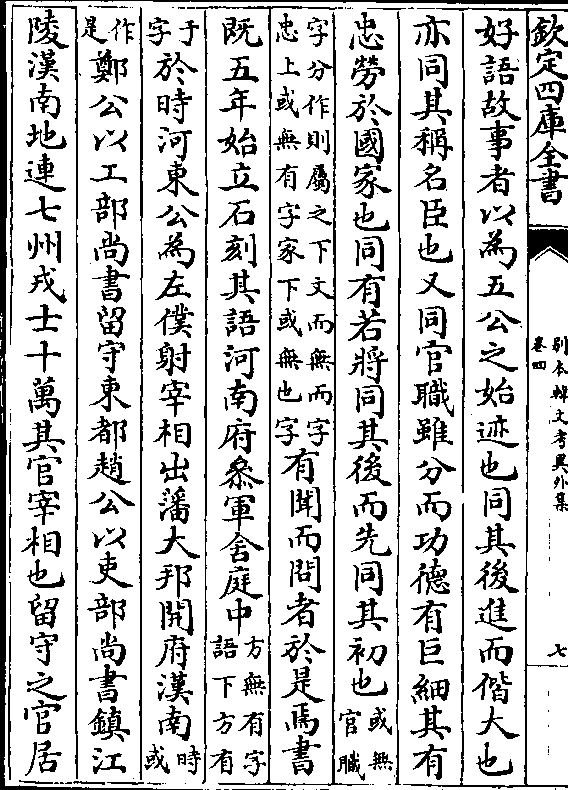 欽定四庫全書
別本韓文考異外集
卷四
七
好語故事者以為五公之始迹也同其後進而偕大也
亦同其稱名臣也又同官職雖分而功德有巨細其有
忠勞於國家也同有若將同其後而先同其初也或無
官職
字分作則屬之下文而無而字
忠上或無有字家下或無也字有聞而問者於是焉書
既五年始立石刻其語河南府叅軍舍庭中方無有字
語下方有
于
字於時河東公為左僕射宰相出藩大邦開府漢南時
或
作
是鄭公以工部尚書留守東都趙公以吏部尚書鎮江
陵漢南地連七州戎士十萬其官宰相也留守之官居